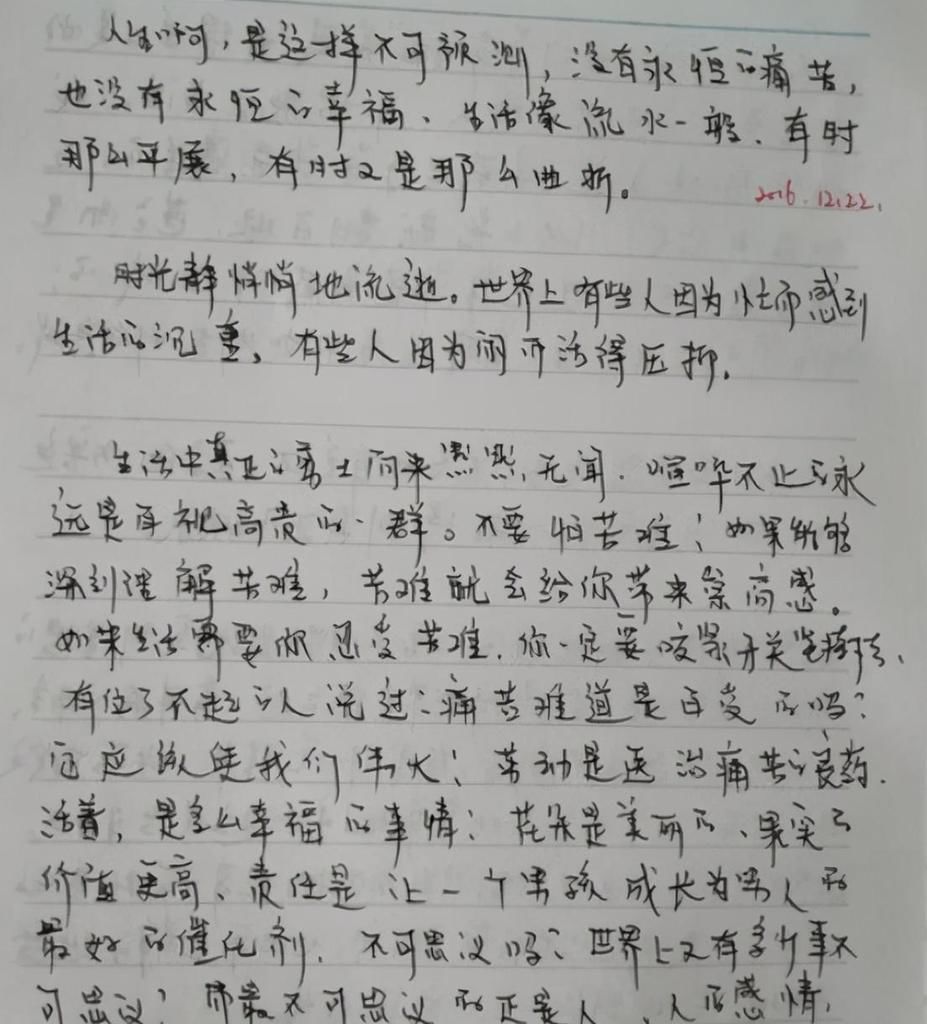 人生啊，是这样不可预测，没有永恒的痛苦，
也没有永恒的幸福、生活像流水一般、有时
那么平展，有时又是那么曲折。
2016.12.22.
时光静悄悄地流逝。世界上有些人因为忙而感到
生活的沉重，有些人因为闲而活得压抑.
生活中真正的勇士向来默默无闻.喧哗不止的永
远是自视高贵的一群。不要怕苦难；如果能够
深刻理解苦难，苦难就会给你带来崇高感。
如果生活需要你忍受苦难.你一定要咬紧牙关坚持下去、
有位了不起的人说过：痛苦难道是白受的吗？
它应该使我们伟大；劳动是医治痛苦的良药.
活着，是多么幸福的事情；花朵是美丽的、果实的
价值更高、责任是让一个男孩成长为男人的
最好的催化剂.不可思议吗？世界上又有多少事不
可思议？而最不可思议的正是人、人的感情，